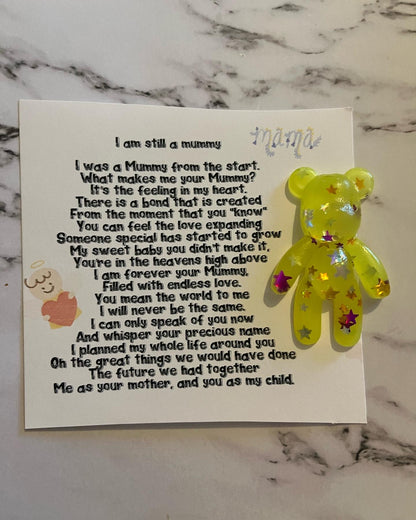 mama
I am still a mummy
I was a Mummy from the start.
What makes me your Mummy?
It's the feeling in my heart.
There is a bond that is created
From the moment that you "know"
You can feel the love expanding
Someone special has started to grow
My sweet baby you didn't make it,
You're in the heavens high above
I am forever your Mummy,
Filled with endless love.
You mean the world to me
I will never be the same.
I can only speak of you now
And whisper your precious name
I planned my whole life around you
Oh the great things we would have done
The future we had together
Me as your mother, and you as my child.